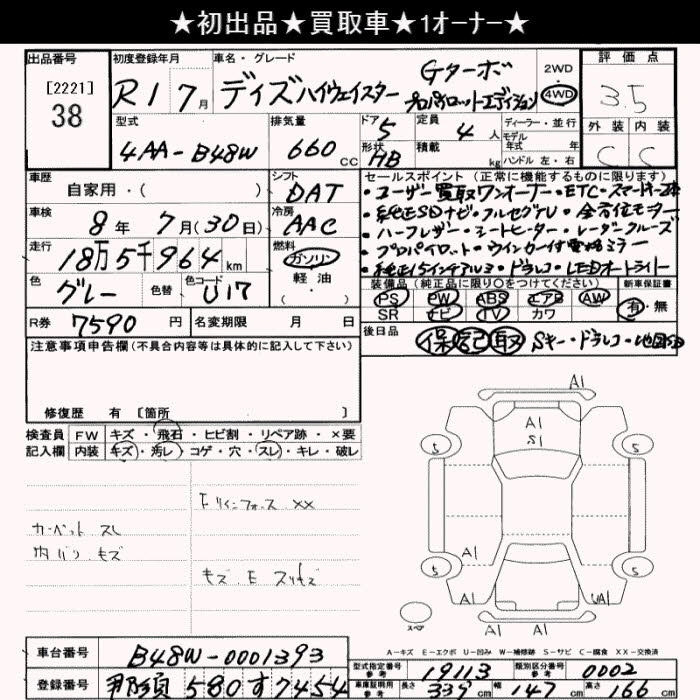 ★初出品★買取車★1オーナー★
出品番号
[2221]
38
初度登録年月
R1 7月
車名・グレード
デイズハイウェイスター
Gターボ
プロパイロットエディション
2WD
・
4WD
評価点
3.5
外装 内装
C C
型式
4AA-B48W
排気量
660 CC
ドア
5
形状
HB
定員
4 人
積載
kg
ディーラー・並行
モデル
年式 年
ハンドル 左・右
車歴
自家用・( )
シフト
DAT
車検
8年 7月(30日)
冷房
AAC
走行
18万5千964km
燃料
ガソリン
軽・油
( ・ )
色
グレー
色替
色コード
U17
R券
7590 円
名変期限 月 日
セールスポイント(正常に機能するものに限ります)
・ユーザー買取ワンオーナー・ETC・スマートキー2本
・純正SDナビ・フルセグTV・全方位モニター
・ハーフレザー・シートヒーター・レーダークルーズ
・プロパイロット・ウインカー付電格ミラー
・純正15インチアルミ・ドラレコ・LEDオートライト
装備品(純正品に限り○をつけてください)
PS PW ABS エアB AW
SR ナビ TV カワ
新車保証書
有・無
後日品
保 記 取 Sキー・ドラレコ・地図SD
注意事項申告欄(不具合内容等は具体的に記入して下さい)
修復歴 有 [箇所 ]
検査員
記入欄
FW キズ・飛石・ヒビ割・リペア跡・×要
内装 キズ・汚レ・コゲ・穴・スレ・キレ・破レ
Fリインフォース XX
カーペット スレ
内バリ キズ
キズ E スリキズ
A1
A1
S1
5
5
A1
5
5
A1
UA1
スペア
A-キズ E-エクボ U-凹み W-補修跡 S-サビ C-腐食 XX-交換済
車台番号
B48W-0001393
登録番号
那須 580 す 7454
型式指定番号
参考
19113
類別区分番号
参考
0002
車庫証明用
参考
長さ
339cm
幅
147cm
高さ
166cm